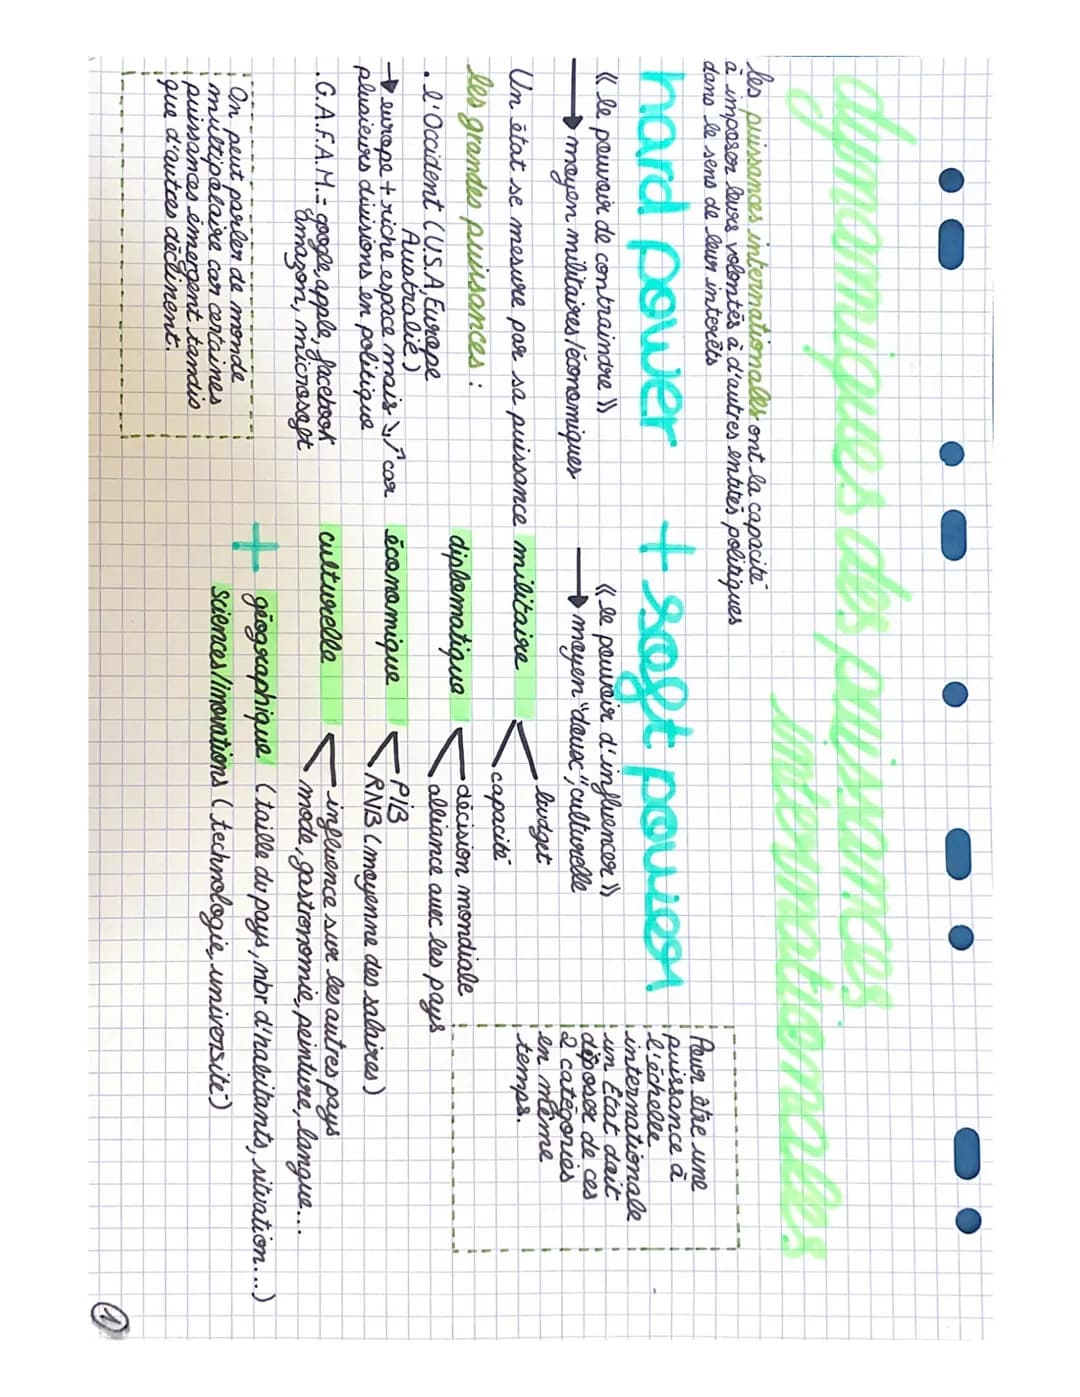 dynamiques des puissances
internationales
les puissances internationales ont la capacité
à imposer leurs volontés à d'autres entités politiques
dans le sens de leur interêts
hard power + soft power
« le pouvoir de contraindre »
→ moyen militaires/économiques
« le pouvoir d'influencer »
→ moyen "doux", culturelle
Pour être une
puissance à
l'échelle
internationale
un État doit
disposer de ces
2 catégories
en même
temps.
Un état se mesure par sa puissance militaire
budget
capacité
diplomatique
décision mondiale
alliance avec les pays
économique
PIB
RNB (moyenne des salaires)
culturelle
influence sur les autres pays
mode, gastronomie, peinture, langue...
+ géographique (taille du pays, nbr d'habitants, situation...)
sciences/inovations (technologie, université)
les grandes puissances :
. l'Occident (U.S.A, Europe
Australie)
→ europe + riche espace mais ↘,↗ car
plusieurs divisions en politique
. G.A.F.A.M. = google, apple, facebook
amazon, microsoft
On peut parler de monde
multipolaire car certaines
puissances émergent tandis
que d'autres déclinent.
1